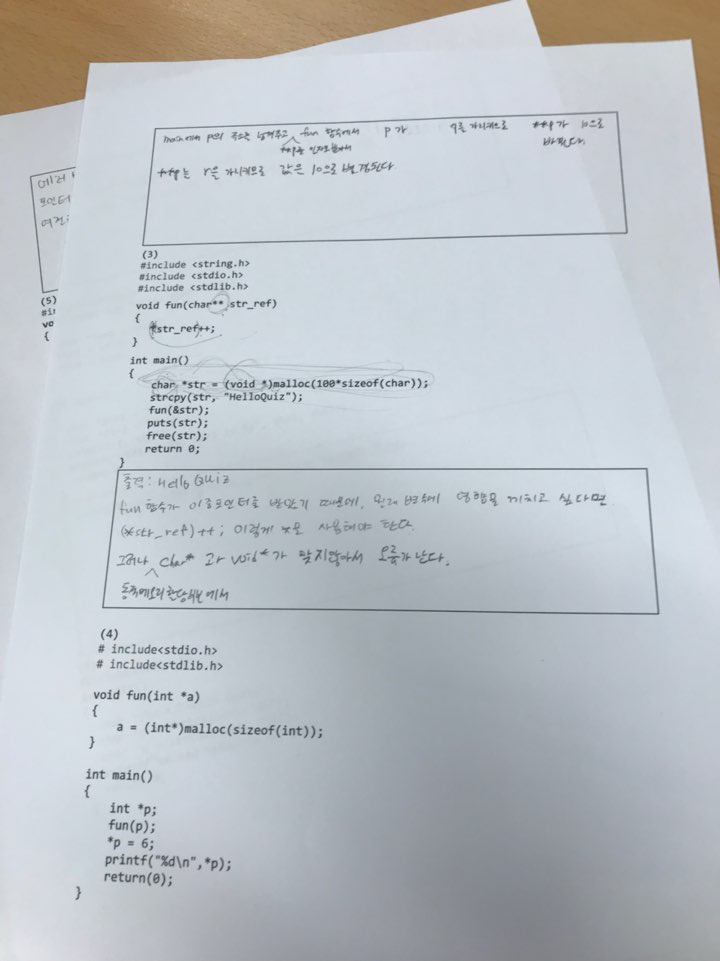 main에서 p의 주소를 넘겨주고 fun 함수에서 p가 q를 가리키므로 **p가 10으로
**p는 인자로 받아서
바뀐다.
**p는 r을 가리키므로 값은 10으로 변경된다.
에러
포인터
여전히
(3)
#include <string.h>
#include <stdio.h>
#include <stdlib.h>
void fun(char** str_ref)
{
*str_ref++;
}
int main()
{
char *str = (void *)malloc(100*sizeof(char));
strcpy(str, "HelloQuiz");
fun(&str);
puts(str);
free(str);
return 0;
}
(5)
#i
vo
{
출력: Hello Quiz
fun 함수가 이중포인터를 받았기 때문에, 원래 변수에 영향을 끼치고 싶다면
(*str_ref)++; 이렇게 사용해야 한다.
그러나 char* 과 void*가 맞지않아서 오류가 난다.
동적메모리할당해보에서
(4)
# include<stdio.h>
# include<stdlib.h>
void fun(int *a)
{
a = (int*)malloc(sizeof(int));
}
int main()
{
int *p;
fun(p);
*p = 6;
printf("%d\n",*p);
return(0);
}